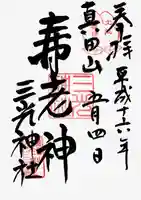 奉拝
平成十六年
五月四日
真田山
寿老神
三光神社